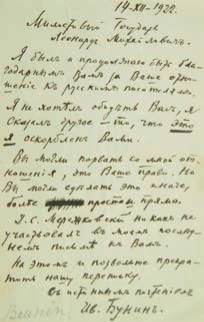 14-XII-1922.
Милостивый Государь
Леонардъ Михайловичъ.
Я былъ и продолжаю быть бла-
годарнымъ Вамъ за Ваше отно-
шеніе къ русскимъ писателямъ.
Я не хотѣлъ обидѣть Васъ, я
сказалъ другое — то, что это
я оскорбленъ Вами.
Вы могли порвать со мной от-
ношенія, это Ваше право. Но
Вы могли сдѣлать это иначе,
болѣе прямо.
Д. С. Мережковскій никакъ не
участвовалъ въ моемъ послѣд-
немъ письмѣ къ Вамъ.
На этомъ и позвольте прекра-
тить нашу переписку.
Съ истиннымъ почтеніемъ
Ив. Бунинъ.